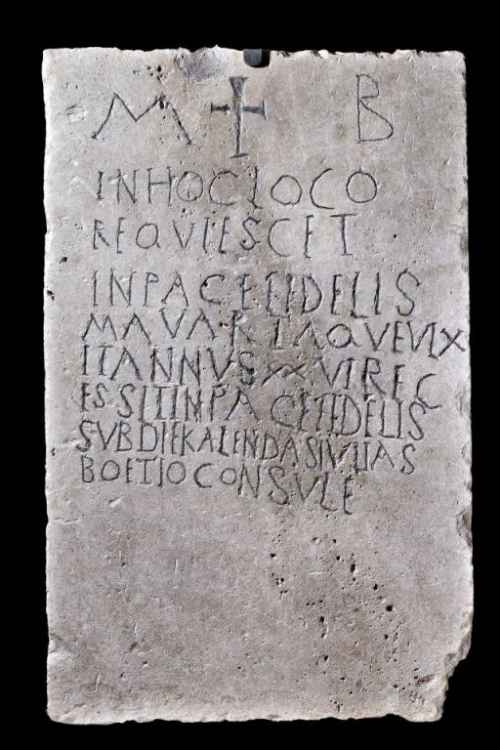 M ✝ B
INHOCLOCO
REQVIESCET
INPACEFIDELIS
MAVARIAQVEVIX
ITANNVSXXVIREC
ESSITINPACEFIDELIS
SVBDIEKALENDASIVLIAS
BOETIOCONSVLE